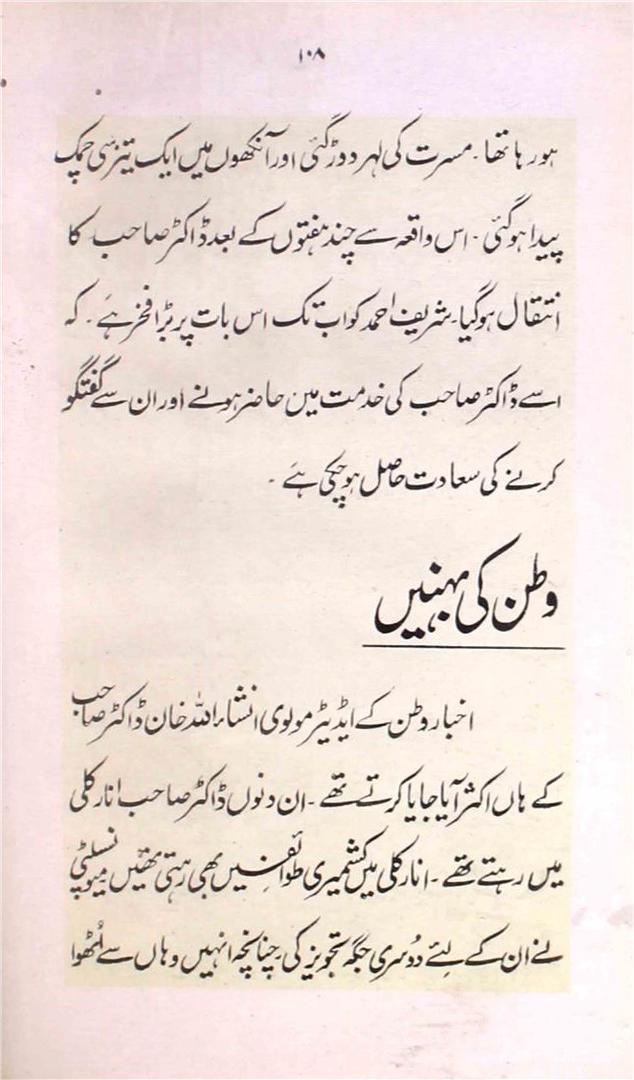 ۱۰۸
ہو رہا تھا ۔ مسرت کی لہر دوڑ گئی اور آنکھوں میں ایک تیز سی چمک
پیدا ہو گئی ۔ اس واقعہ سے چند ہفتوں کے بعد ڈاکٹر صاحب کا
انتقال ہو گیا ۔ شریف احمد کو اب تک اس بات پر بڑا فخر ہے ۔ کہ
اسے ڈاکٹر صاحب کی خدمت میں حاضر ہونے اور ان سے گفتگو
کرنے کی سعادت حاصل ہو چکی ہے ۔
وطن کی بہنیں
اخبار وطن کے ایڈیٹر مولوی انشاء اللہ خان ڈاکٹر صاحب
کے ہاں اکثر آیا جایا کرتے تھے ۔ ان دنوں ڈاکٹر صاحب انارکلی
میں رہتے تھے ۔ انارکلی میں کشمیری طوائفیں بھی رہتی تھیں میونسپلٹی
نے ان کے لئے دُوسری جگہ تجویز کی ۔ چنانچہ انہیں وہاں سے اُٹھوا